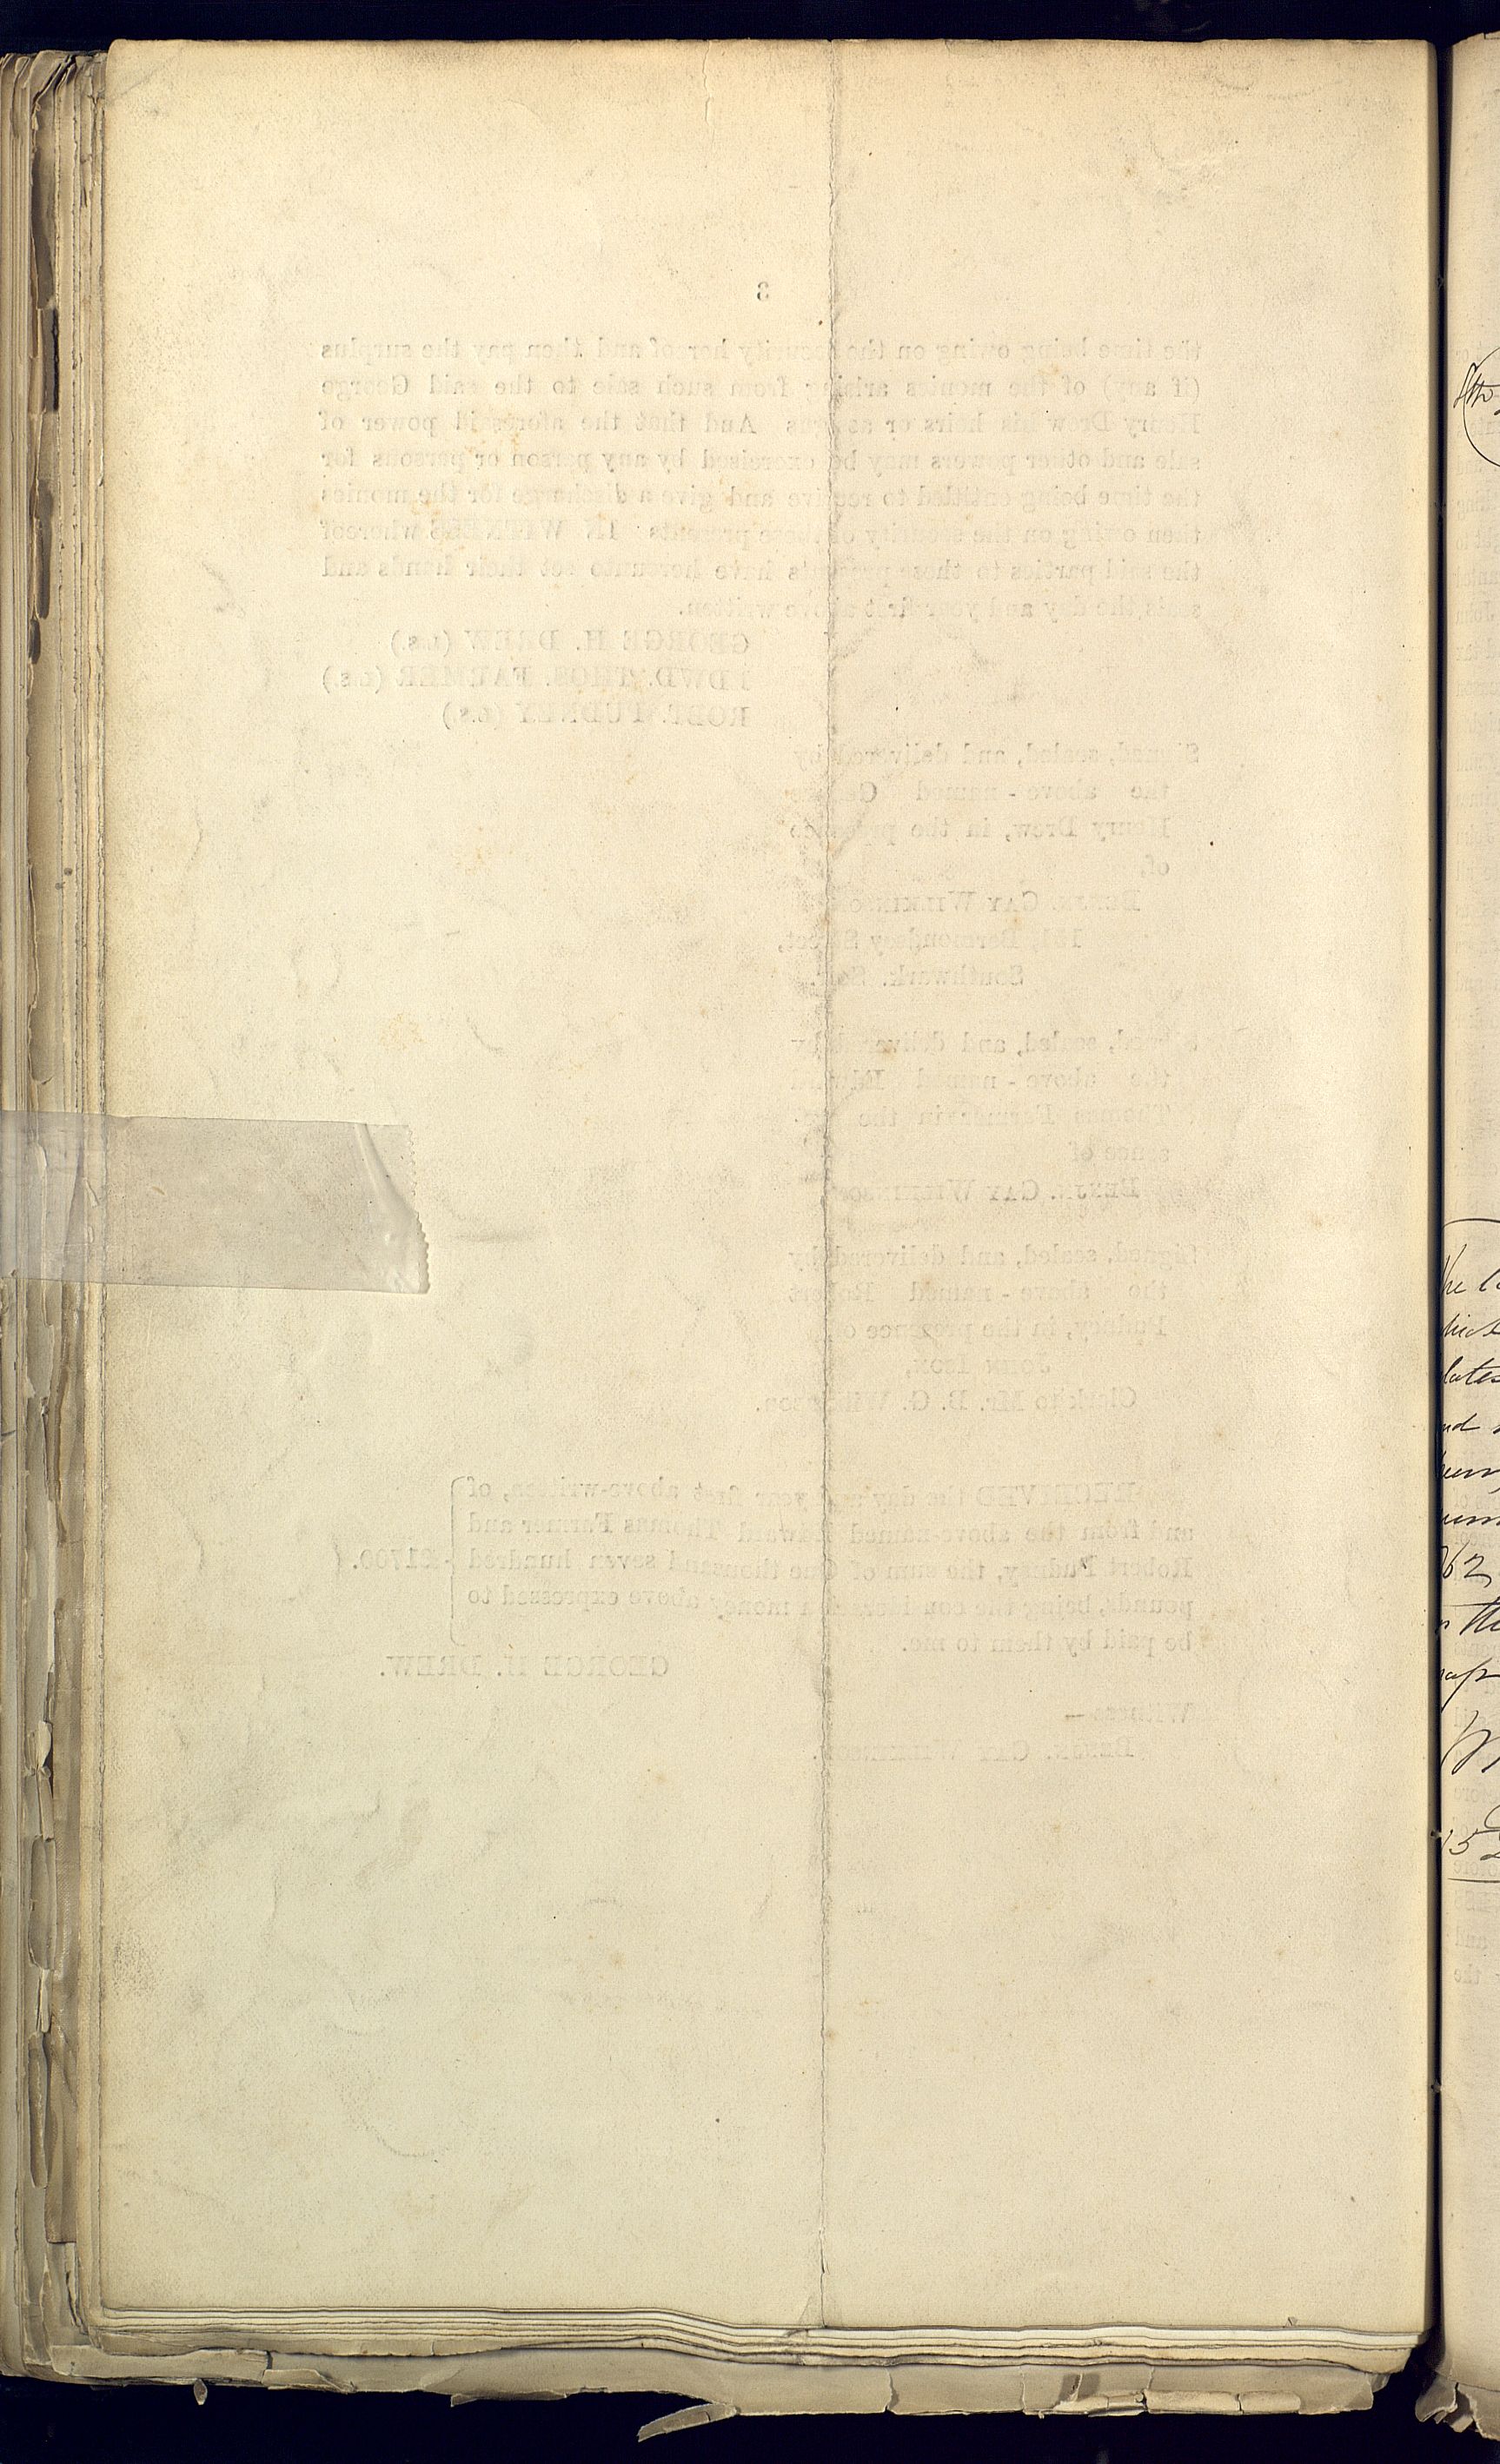 3
the time being owing on the security hereof and then pay the surplus
(if any) of the monies arising from such sale to the said George
Henry Drew his heirs or assigns And that the aforesaid power of
sale and other powers may be exercised by any person or persons for
the time being entitled to receive and give a discharge for the monies
then owing on the security of these presents IN WITNESS whereof
the said parties to these presents have hereunto set their hands and
seals, the day and year first above written.
GEORGE H. DREW (L.S.)
EDWD. THOS. FARMER (L.S.)
ROBT. PUDNEY (L.S.)
Signed, sealed, and delivered by
the above-named George
Henry Drew, in the presence
of,
BENJN. GAY WILKINSON,
151, Bermondsey Street,
Southwark. Solr.
Signed, sealed, and delivered by
the above-named Edward
Thomas Farmer in the pre-
sence of
BENJN. GAY WILKINSON.
Signed, sealed, and delivered by
the above-named Robert
Pudney, in the presence of,
JOHN ISON,
Clerk to Mr. B. G. Wilkinson.
RECEIVED the day and year first above-written, of
and from the above-named Edward Thomas Farmer and
Robert Pudney, the sum of One thousand seven hundred £1700.
pounds, being the consideration money above expressed to
be paid by them to me.
GEORGE H. DREW.
Witness—
BENJN. GAY WILKINSON.